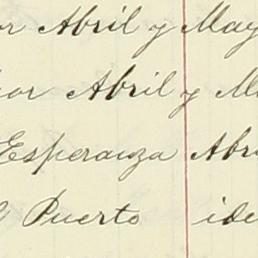 or Abril y May
or Abril y M
Esperanza Abr
Puerto ide